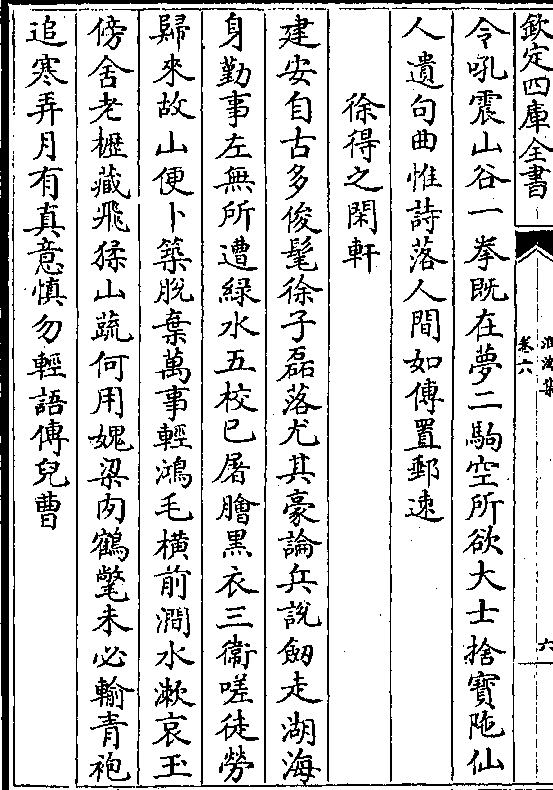 欽定四庫全書
淮海集
卷六
六
令吼震山谷一拳既在夢二駒空所欲大士捨寶陁仙
人遺句曲惟詩落人間如傳置郵速
徐得之閑軒
建安自古多俊髦徐子磊落尤其豪論兵說劒走湖海
身勤事左無所遭綠水五校已屠膾黑衣三衞嗟徒勞
歸來故山便卜築脫棄萬事輕鴻毛橫前澗水漱哀玉
傍舍老櫪藏飛猱山蔬何用媿梁肉鶴氅未必輸青袍
追寒弄月有真意慎勿輕語傳兒曹